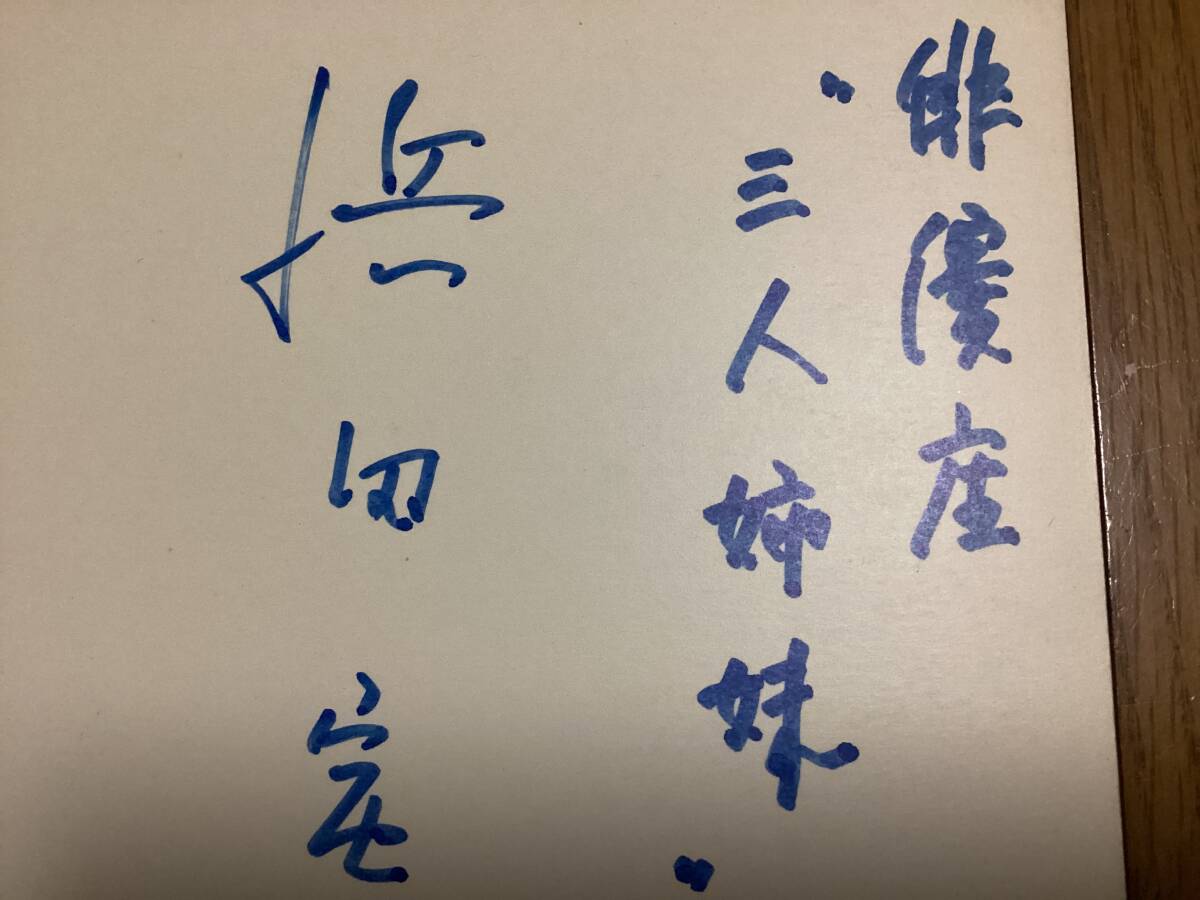 俳優座
〝三人姉妹〟
浜田